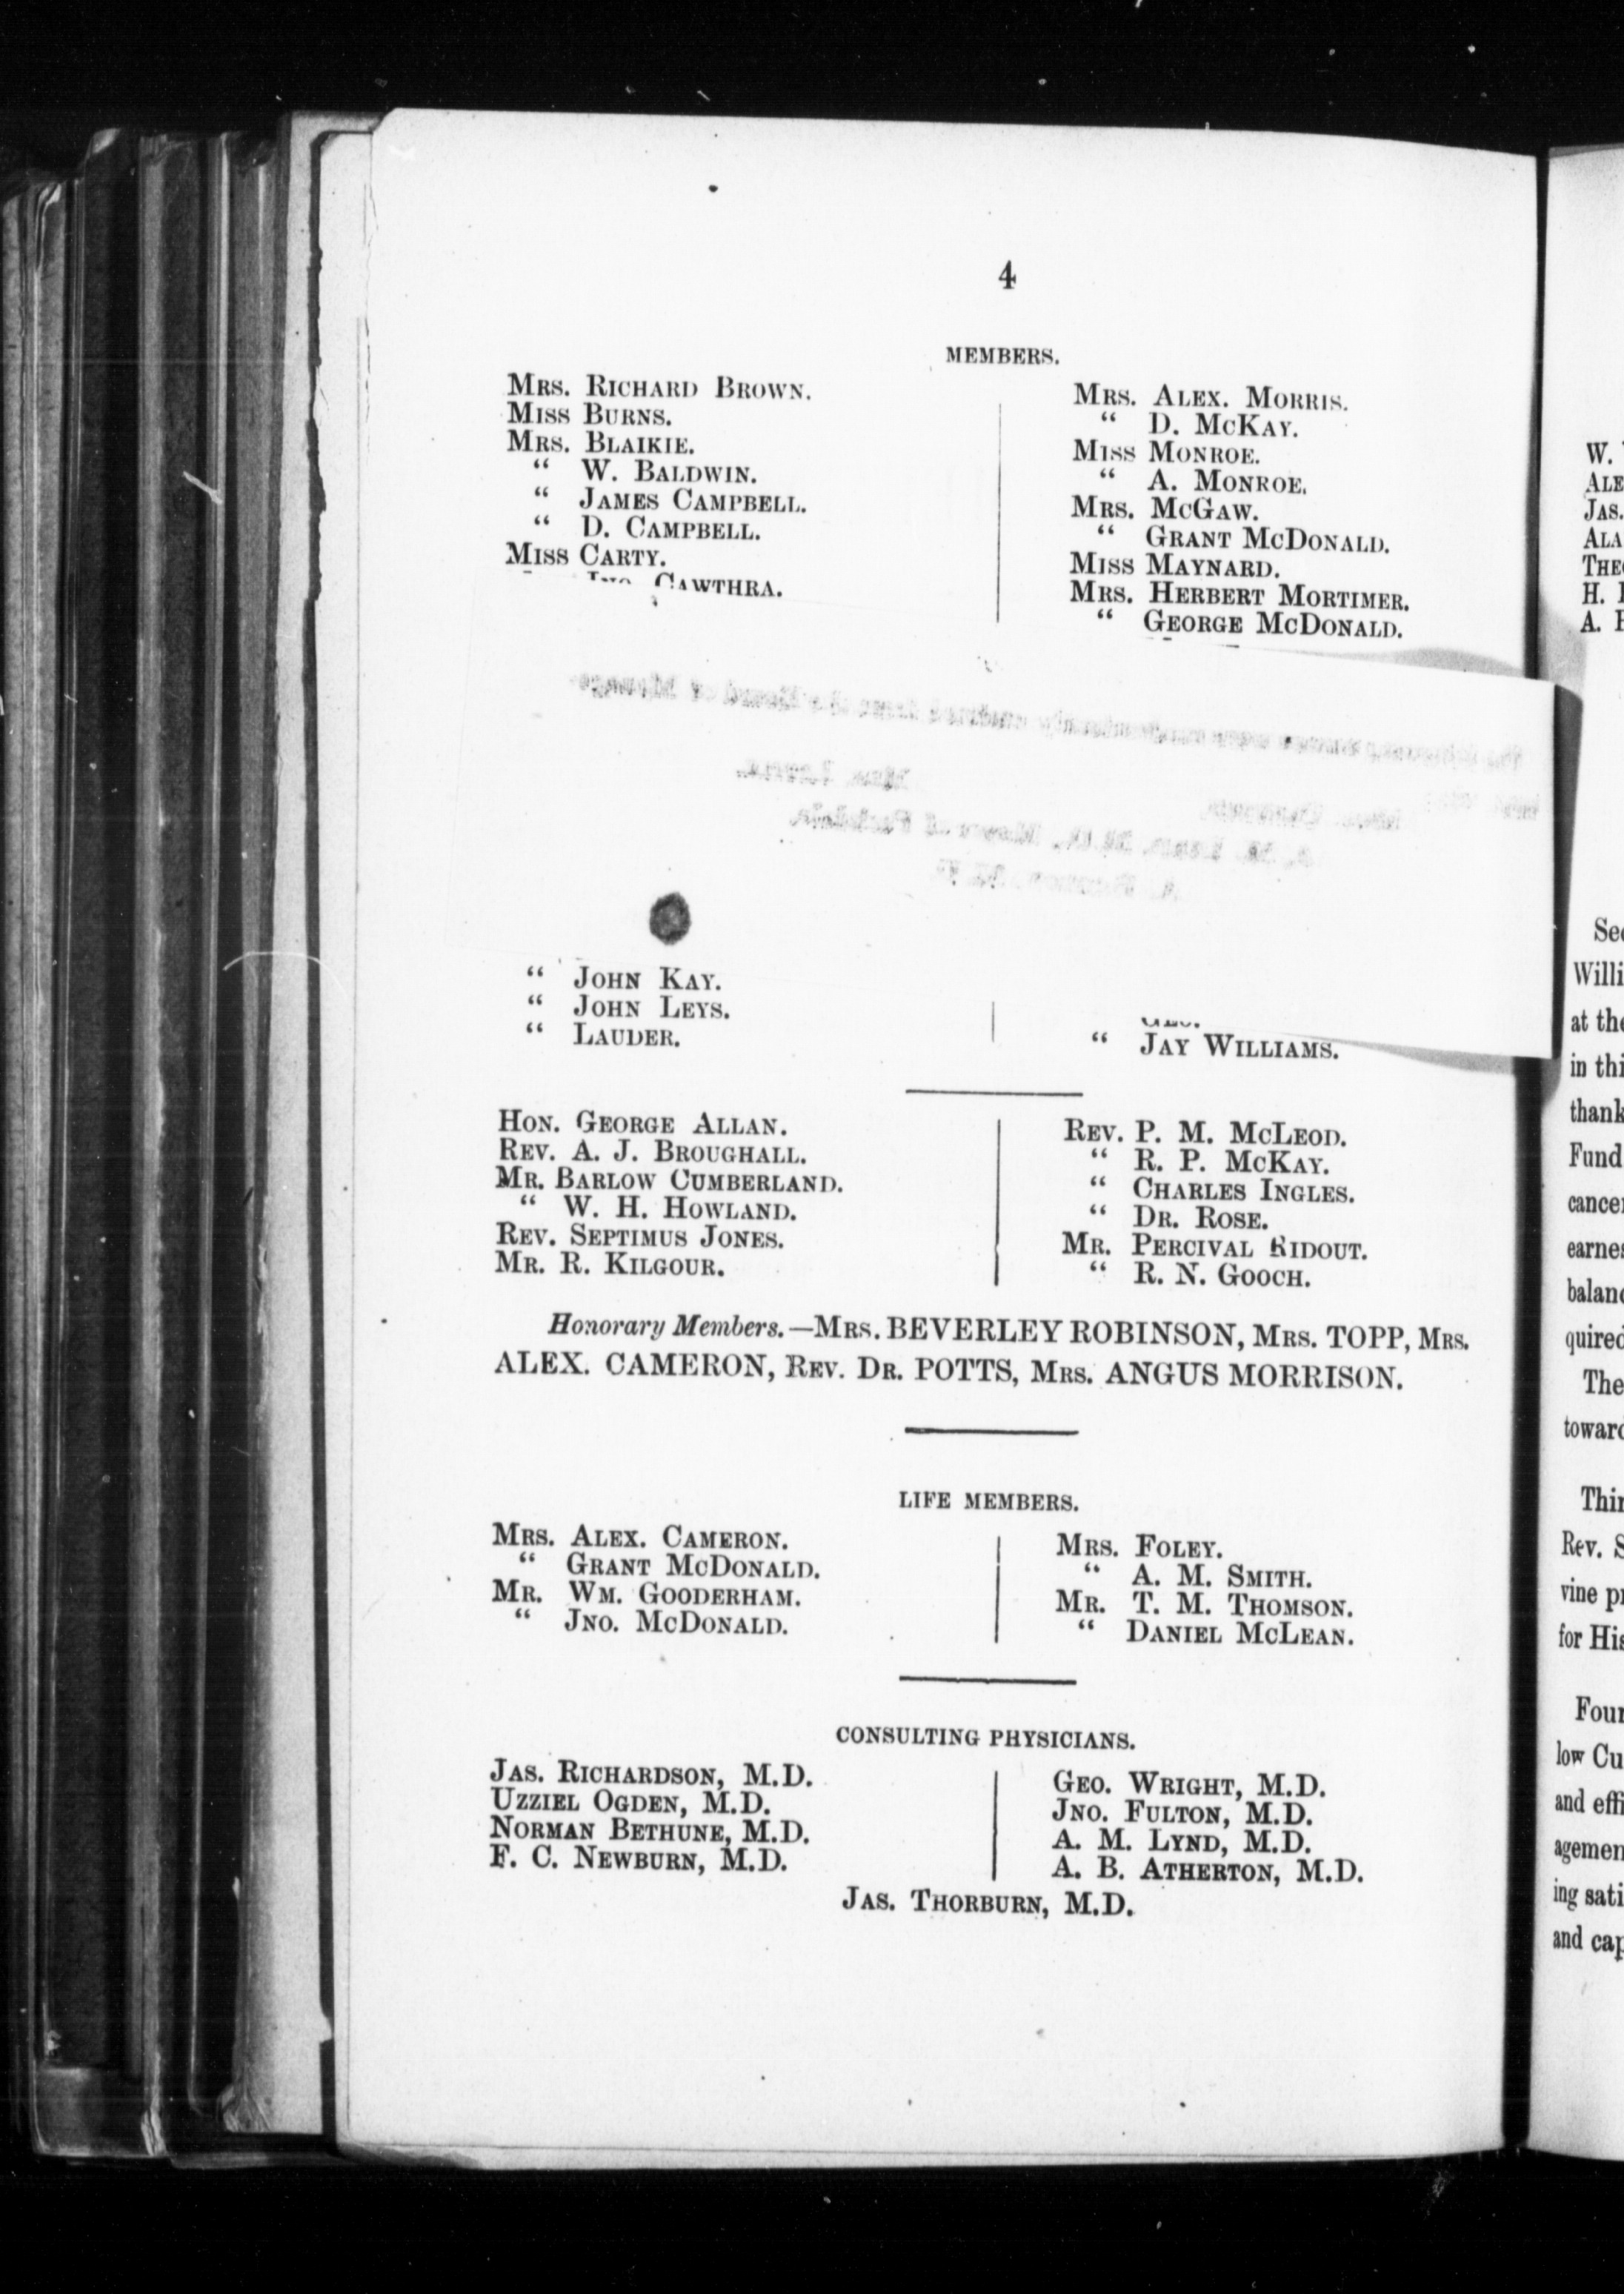 4
MEMBERS.
MRS. RICHARD BROWN.
MISS BURNS.
MRS. BLAIKIE.
“ W. BALDWIN.
“ JAMES CAMPBELL.
“ D. CAMPBELL.
MISS CARTY.
JNO. CAWTHRA.
MRS. ALEX. MORRIS.
“ D. MCKAY.
MISS MONROE.
“ A. MONROE.
MRS. MCGAW.
“ GRANT MCDONALD.
MISS MAYNARD.
MRS. HERBERT MORTIMER.
“ GEORGE MCDONALD.
“ JOHN KAY.
“ JOHN LEYS.
“ LAUDER.
“ JAY WILLIAMS.
HON. GEORGE ALLAN.
REV. A. J. BROUGHALL.
MR. BARLOW CUMBERLAND.
“ W. H. HOWLAND.
REV. SEPTIMUS JONES.
MR. R. KILGOUR.
REV. P. M. MCLEOD.
“ R. P. MCKAY.
“ CHARLES INGLES.
“ DR. ROSE.
MR. PERCIVAL RIDOUT.
“ R. N. GOOCH.
Honorary Members.—MRS. BEVERLEY ROBINSON, MRS. TOPP, MRS.
ALEX. CAMERON, REV. DR. POTTS, MRS. ANGUS MORRISON.
LIFE MEMBERS.
MRS. ALEX. CAMERON.
“ GRANT MCDONALD.
MR. WM. GOODERHAM.
“ JNO. MCDONALD.
MRS. FOLEY.
“ A. M. SMITH.
MR. T. M. THOMSON.
“ DANIEL MCLEAN.
CONSULTING PHYSICIANS.
JAS. RICHARDSON, M.D.
UZZIEL OGDEN, M.D.
NORMAN BETHUNE, M.D.
F. C. NEWBURN, M.D.
GEO. WRIGHT, M.D.
JNO. FULTON, M.D.
A. M. LYND, M.D.
A. B. ATHERTON, M.D.
JAS. THORBURN, M.D.
W.
JAS.
H.
A.
at the
in thi
Fund
The
Rev. S
for His
low Cu
and effi
ing sati
and cap